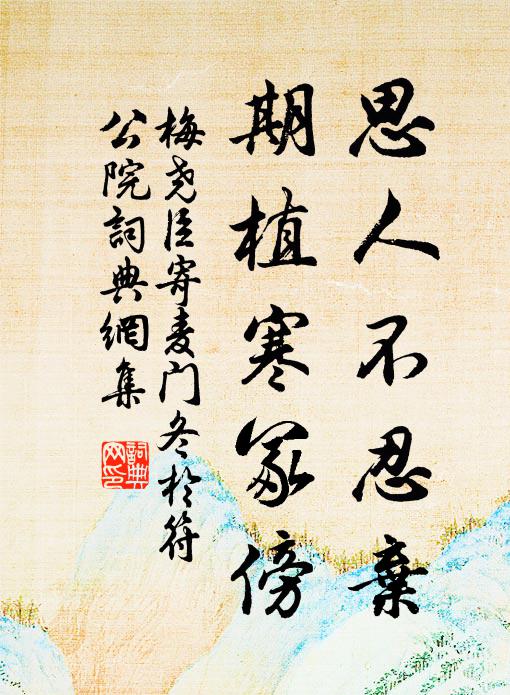 思人不忍棄
期植寒冢傍
梅尧臣寄麦门冬於符
公院詞典網集
詞典
网印